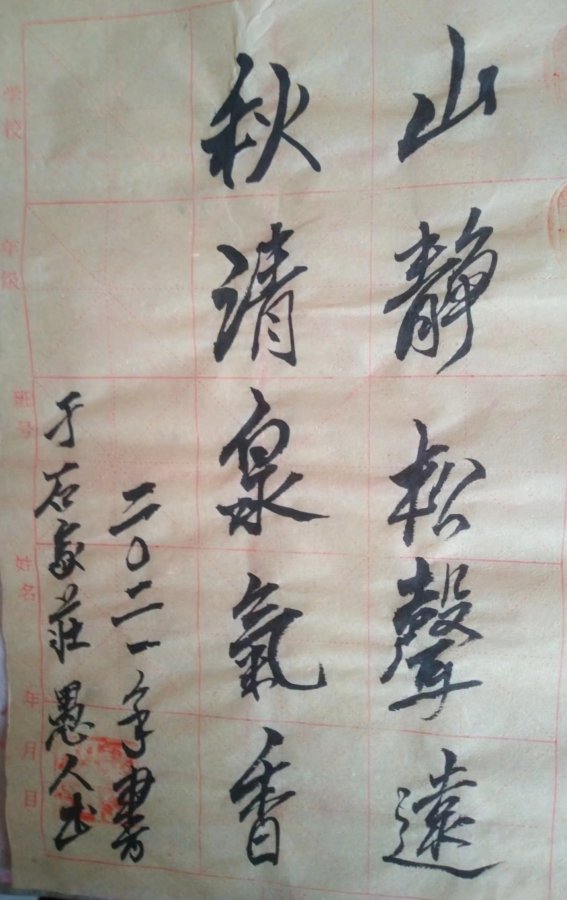 山靜松聲遠
秋清泉氣香
二〇二一年書
于石家莊愚人出
学校
年级
班号
姓名
年月日